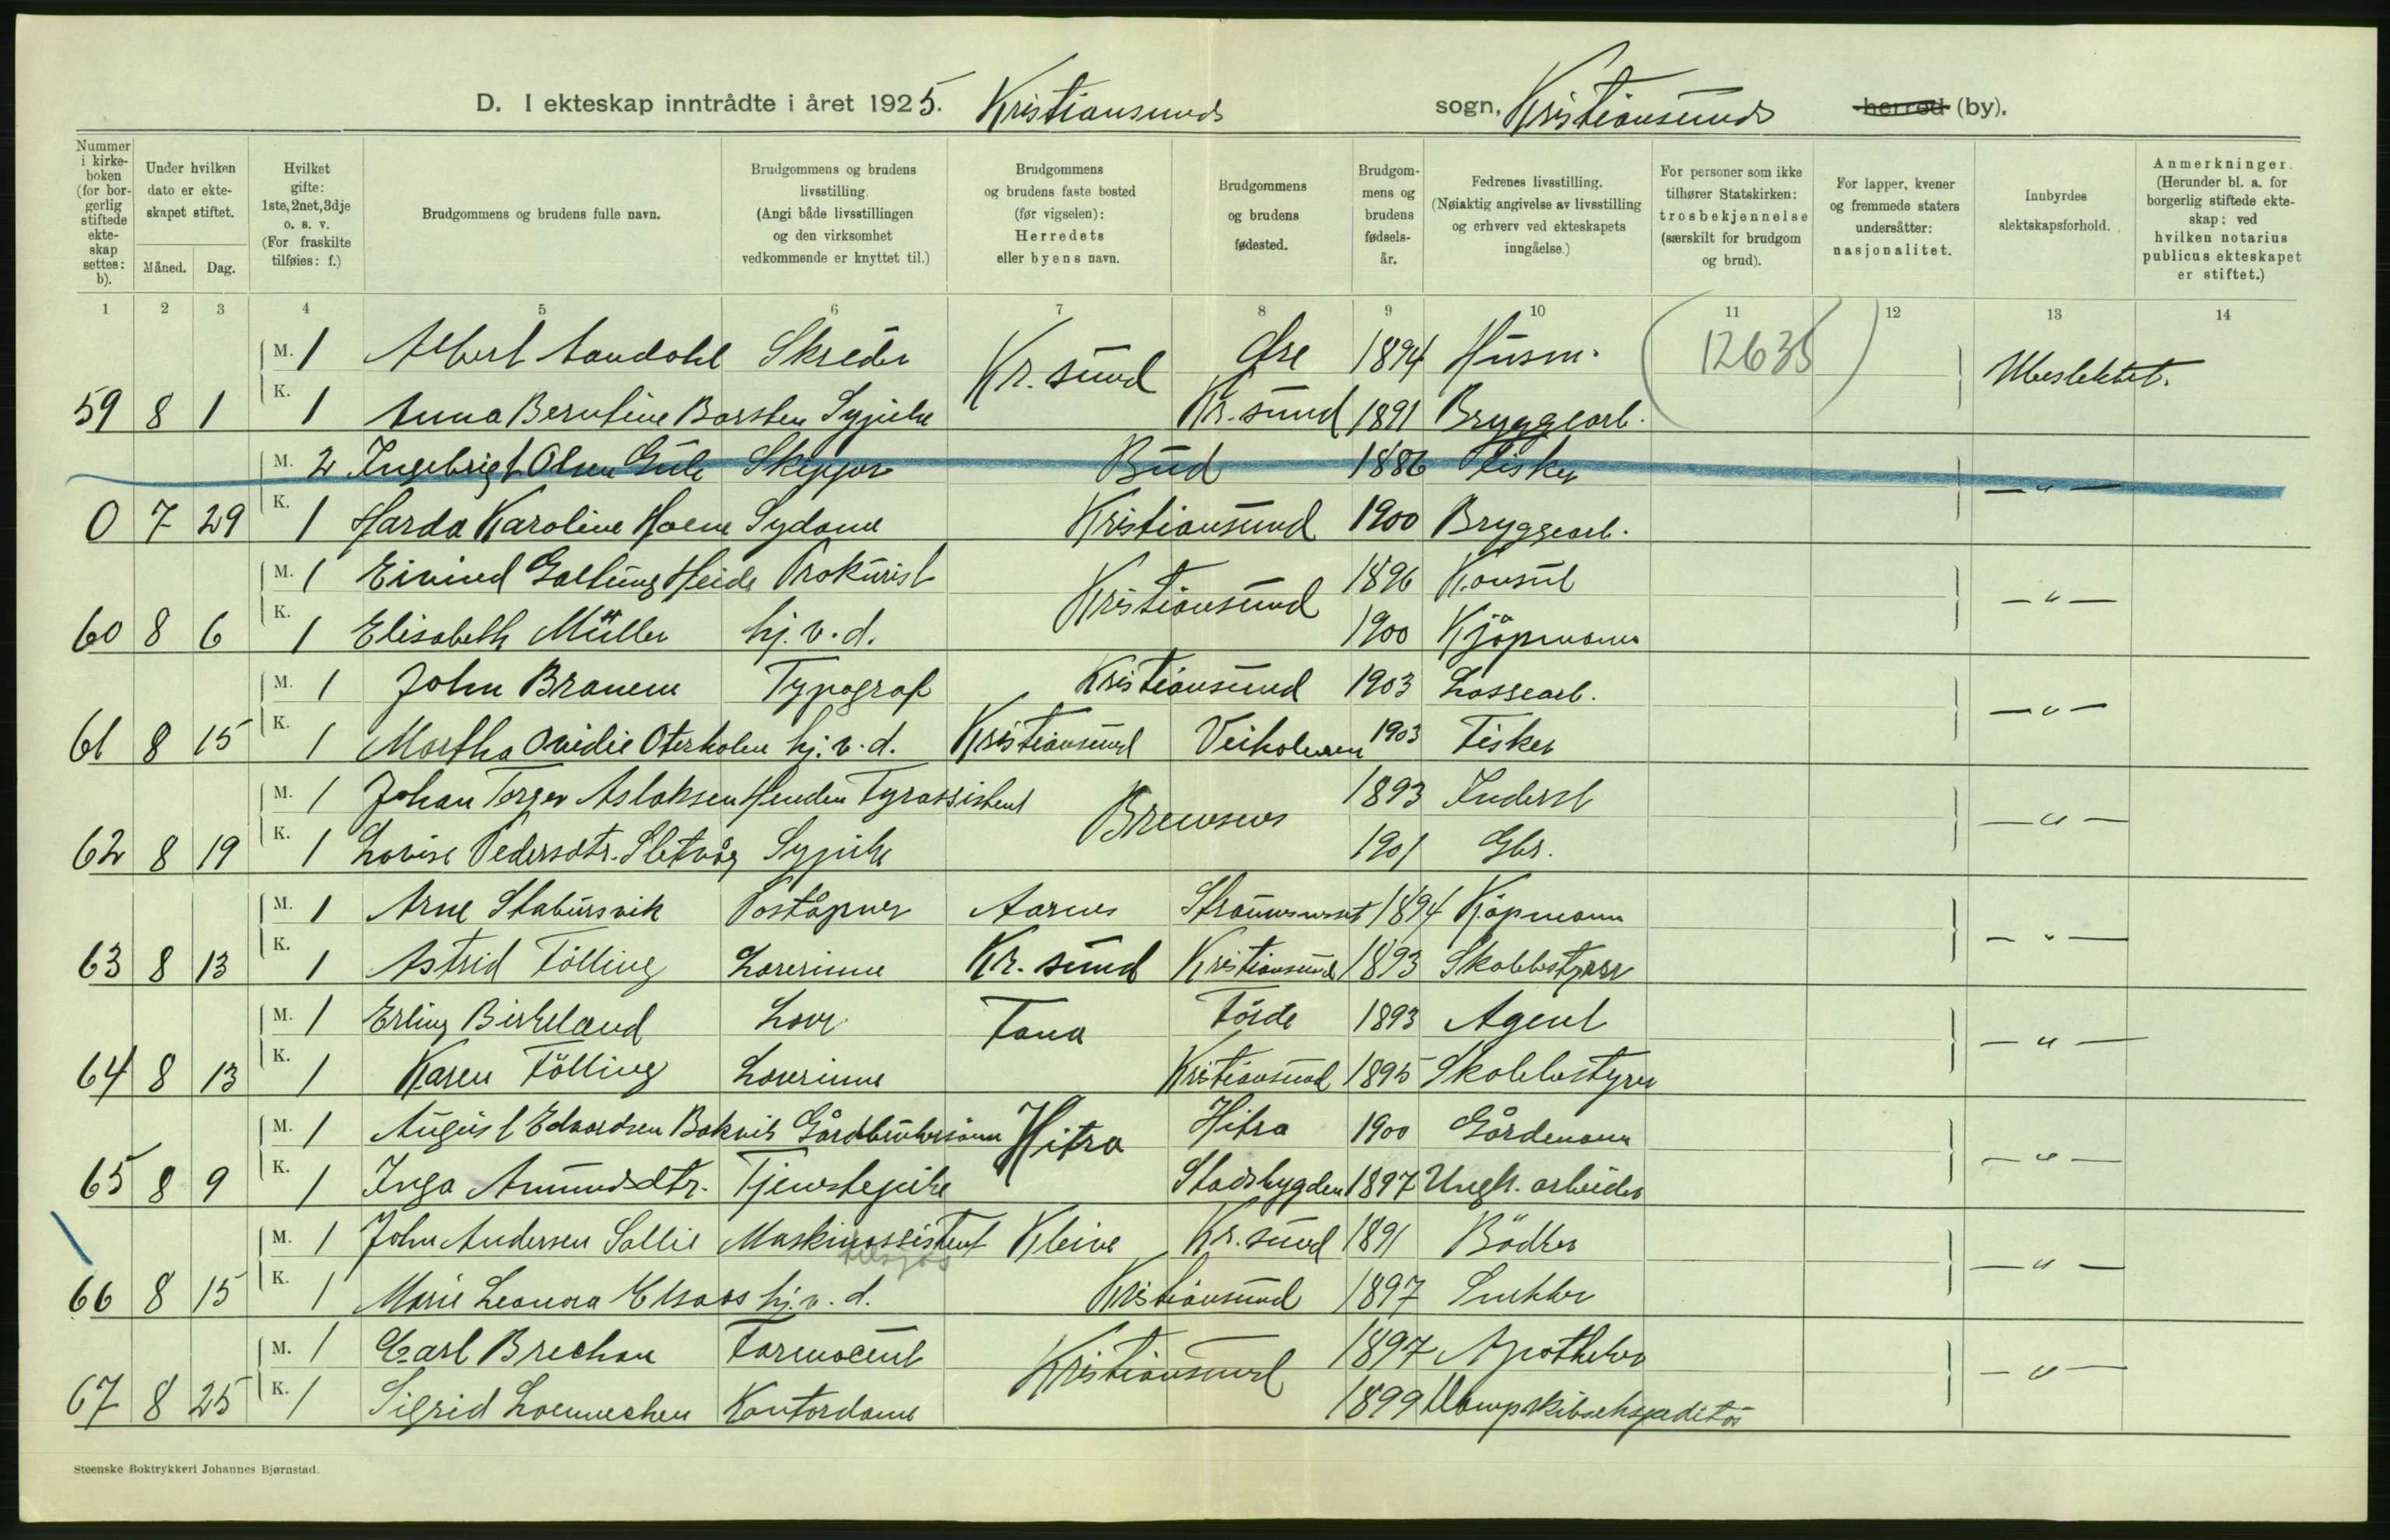 D. I ekteskap inntrådte i året 1925. Kristiansunds sogn, Kristiansunds herred (by).
Nummer i kirkeboken (for borgerlig stiftede ekteskap settes: b).
Under hvilken dato er ekteskapet stiftet.
Måned. Dag.
Hvilket gifte: 1ste, 2net, 3dje o. s. v. (For fraskilte tilføies: f.)
Brudgommens og brudens fulle navn.
Brudgommens og brudens livsstilling. (Angi både livsstillingen og den virksomhet vedkommende er knyttet til.)
Brudgommens og brudens faste bosted (før vigselen): Herredets eller byens navn.
Brudgommens og brudens fødested.
Brudgommens og brudens fødselsår.
Fedrenes livsstilling. (Nøiaktig angivelse av livsstilling og erhverv ved ekteskapets inngåelse.)
For personer som ikke tilhører Statskirken: trosbekjennelse (særskilt for brudgom og brud).
For lapper, kvener og fremmede staters undersåtter: nasjonalitet.
Innbyrdes slektskapsforhold.
Anmerkninger. (Herunder bl. a. for borgerlig stiftede ekteskap: ved hvilken notarius publicus ekteskapet er stiftet.)
1 2 3 4 5 6 7 8 9 10 11 12 13 14
M. 1 Albert Sandahl Skredder Kr.sund Øre 1894 Husm. (12635) Ubeslektet.
59 8 1 K. 1 Anna Berntine Borsten Sypike Kr.sund 1891 Bryggearb.
M. 2 Ingebrigt Olsen Gule Skipper Bud 1886 Fisker — " —
0 7 29 K. 1 Harda Karoline Hoene Sydame Kristiansund 1900 Bryggearb.
M. 1 Eivind Galtung Heide Prokurist Kristiansund 1896 Konsul — " —
60 8 6 K. 1 Elisabeth Müller hj. v. d. 1900 Kjöpmann
M. 1 John Branem Typograf Kristiansund 1903 Lossearb. — " —
61 8 15 K. 1 Martha Ovidie Oterholm hj. v. d. Kristiansund Veiholmen 1903 Fisker
M. 1 Johan Torger Aslaksen Henden Fyrassistent Bremsnes 1893 Inderst — " —
62 8 19 K. 1 Lovise Pedersdtr. Sletvåg Sypike 1901 Gbr.
M. 1 Arne Stabursvik Poståpner Aarnes Straumsneset 1894 Köpmann — " —
63 8 13 K. 1 Astrid Fölling Lærerinne Kr. sund Kristiansund 1893 Skolebestyrer
M. 1 Erling Birkeland Lærer Tana Förde 1893 Agent — " —
64 8 13 K. 1 Karen Fölling Lærerinne Kristiansund 1895 Skolebestyrer
M. 1 August Edvardsen Bakvik Gårdbrukersönn Hitra Hitra 1900 Gårdmann — " —
65 8 9 K. 1 Inga Amundsdtr. Tjenstepike Stadsbygden 1897 Uregl. arbeider
M. 1 John Andersen Sollie Maskinassistent Kleive Kr. sund 1891 Bödker — " —
tilsjøs
66 8 15 K. 1 Marie Leonora Clsaas hj. v. d. Kristiansund 1897 Snekker
M. 1 Carl Brechan Farmaceut Kristiansund 1897 Apotheker — " —
67 8 25 K. 1 Sigrid Loennechen Kontordame 1899 Dampskibsekspeditör
Steenske Boktrykkeri Johannes Bjørnstad.